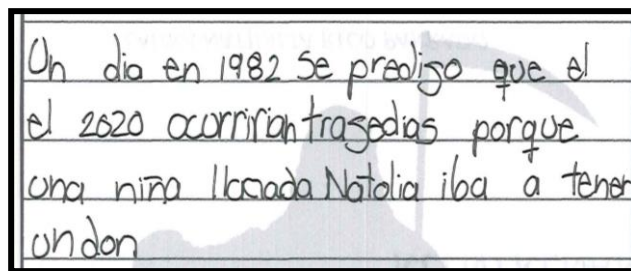 Un dia en 1982 se predijo que el
el 2020 ocurririan tragedias porque
una niña llamada Natalia iba a tener
un don